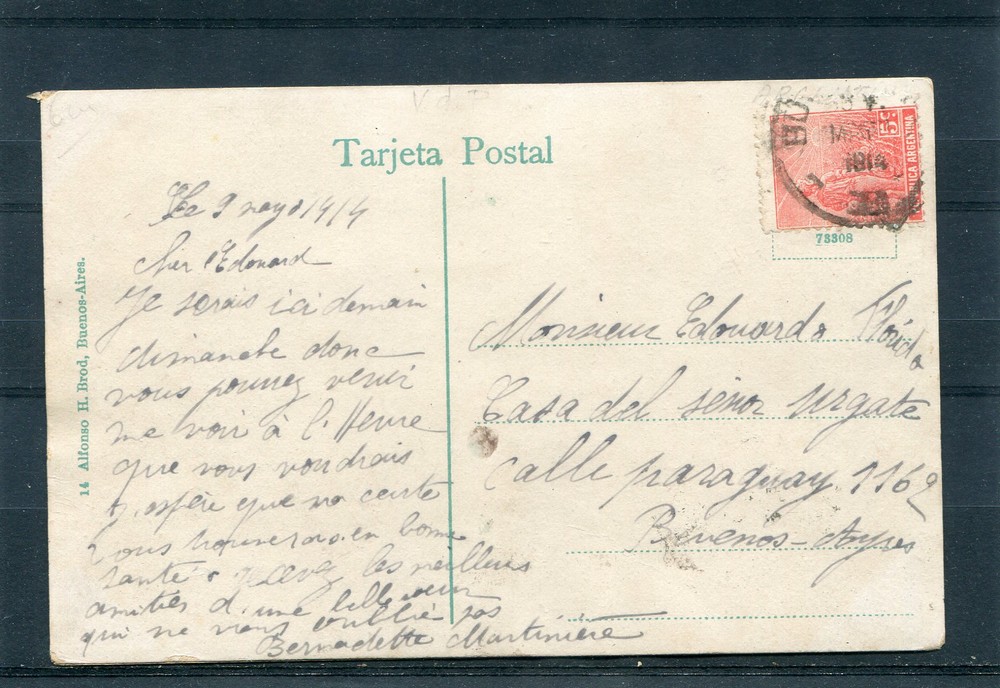 Tarjeta Postal
5c
REPUBLICA ARGENTINA
1914
73308
14 Alfonso H. Brod, Buenos-Aires.
Le 9 mayo 1914
cher Edouard
Je serais ici demain
dimanche donc
vous pourrez venir
me voir à l'Heure
que vous voudrais
J. espère que ma carte
vous trouveras en bonne
santé
les meilleurs
amitiés d'une
qui ne vous oublie pas
Bernadette Martinière
Monsieur Edouardo
Casa del señor urgate
calle paraguay 1162
Buenos-Ayres